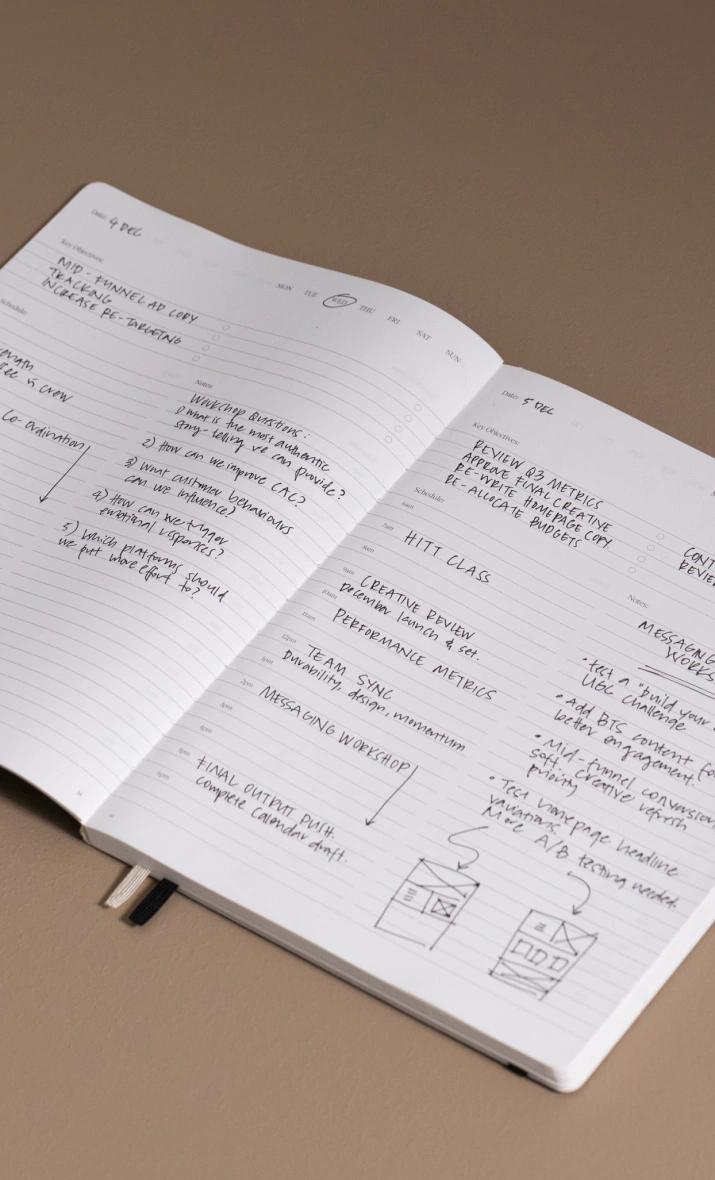 Date: 4 DEC
MON TUE WED THU FRI SAT SUN
Key Objectives:
MID-FUNNEL AD COPY
TRACKING
INCREASE RE-TARGETING
Schedule:
vs crew
Co-ordination
Notes:
Workshop Questions:
1) What is the most authentic
story-telling we can provide?
2) How can we improve CAC?
3) What customer behaviours
can we influence?
4) How can we trigger
emotional responses?
5) Which platforms should
we put more effort to?
Date: 5 DEC
Key Objectives:
REVIEW Q3 METRICS
APPROVE FINAL CREATIVE
RE-WRITE HOMEPAGE COPY
RE-ALLOCATE BUDGETS
CONT
REVIE
Schedule:
6am
7am HITT CLASS
8am
9am CREATIVE REVIEW
10am December launch & set.
11am PERFORMANCE METRICS
12pm TEAM SYNC
1pm Durability, design, momentum
2pm MESSAGING WORKSHOP
3pm
4pm
5pm FINAL OUTPUT PUSH.
6pm Complete Calendar draft.
Notes:
MESSAGING
WORKS
• test a "build your
UGC challenge
• Add BTS content fo
better engagement.
• Mid-funnel conversion
soft. Creative refresh
priority
• Test homepage headline
variations.
More A/B testing needed.